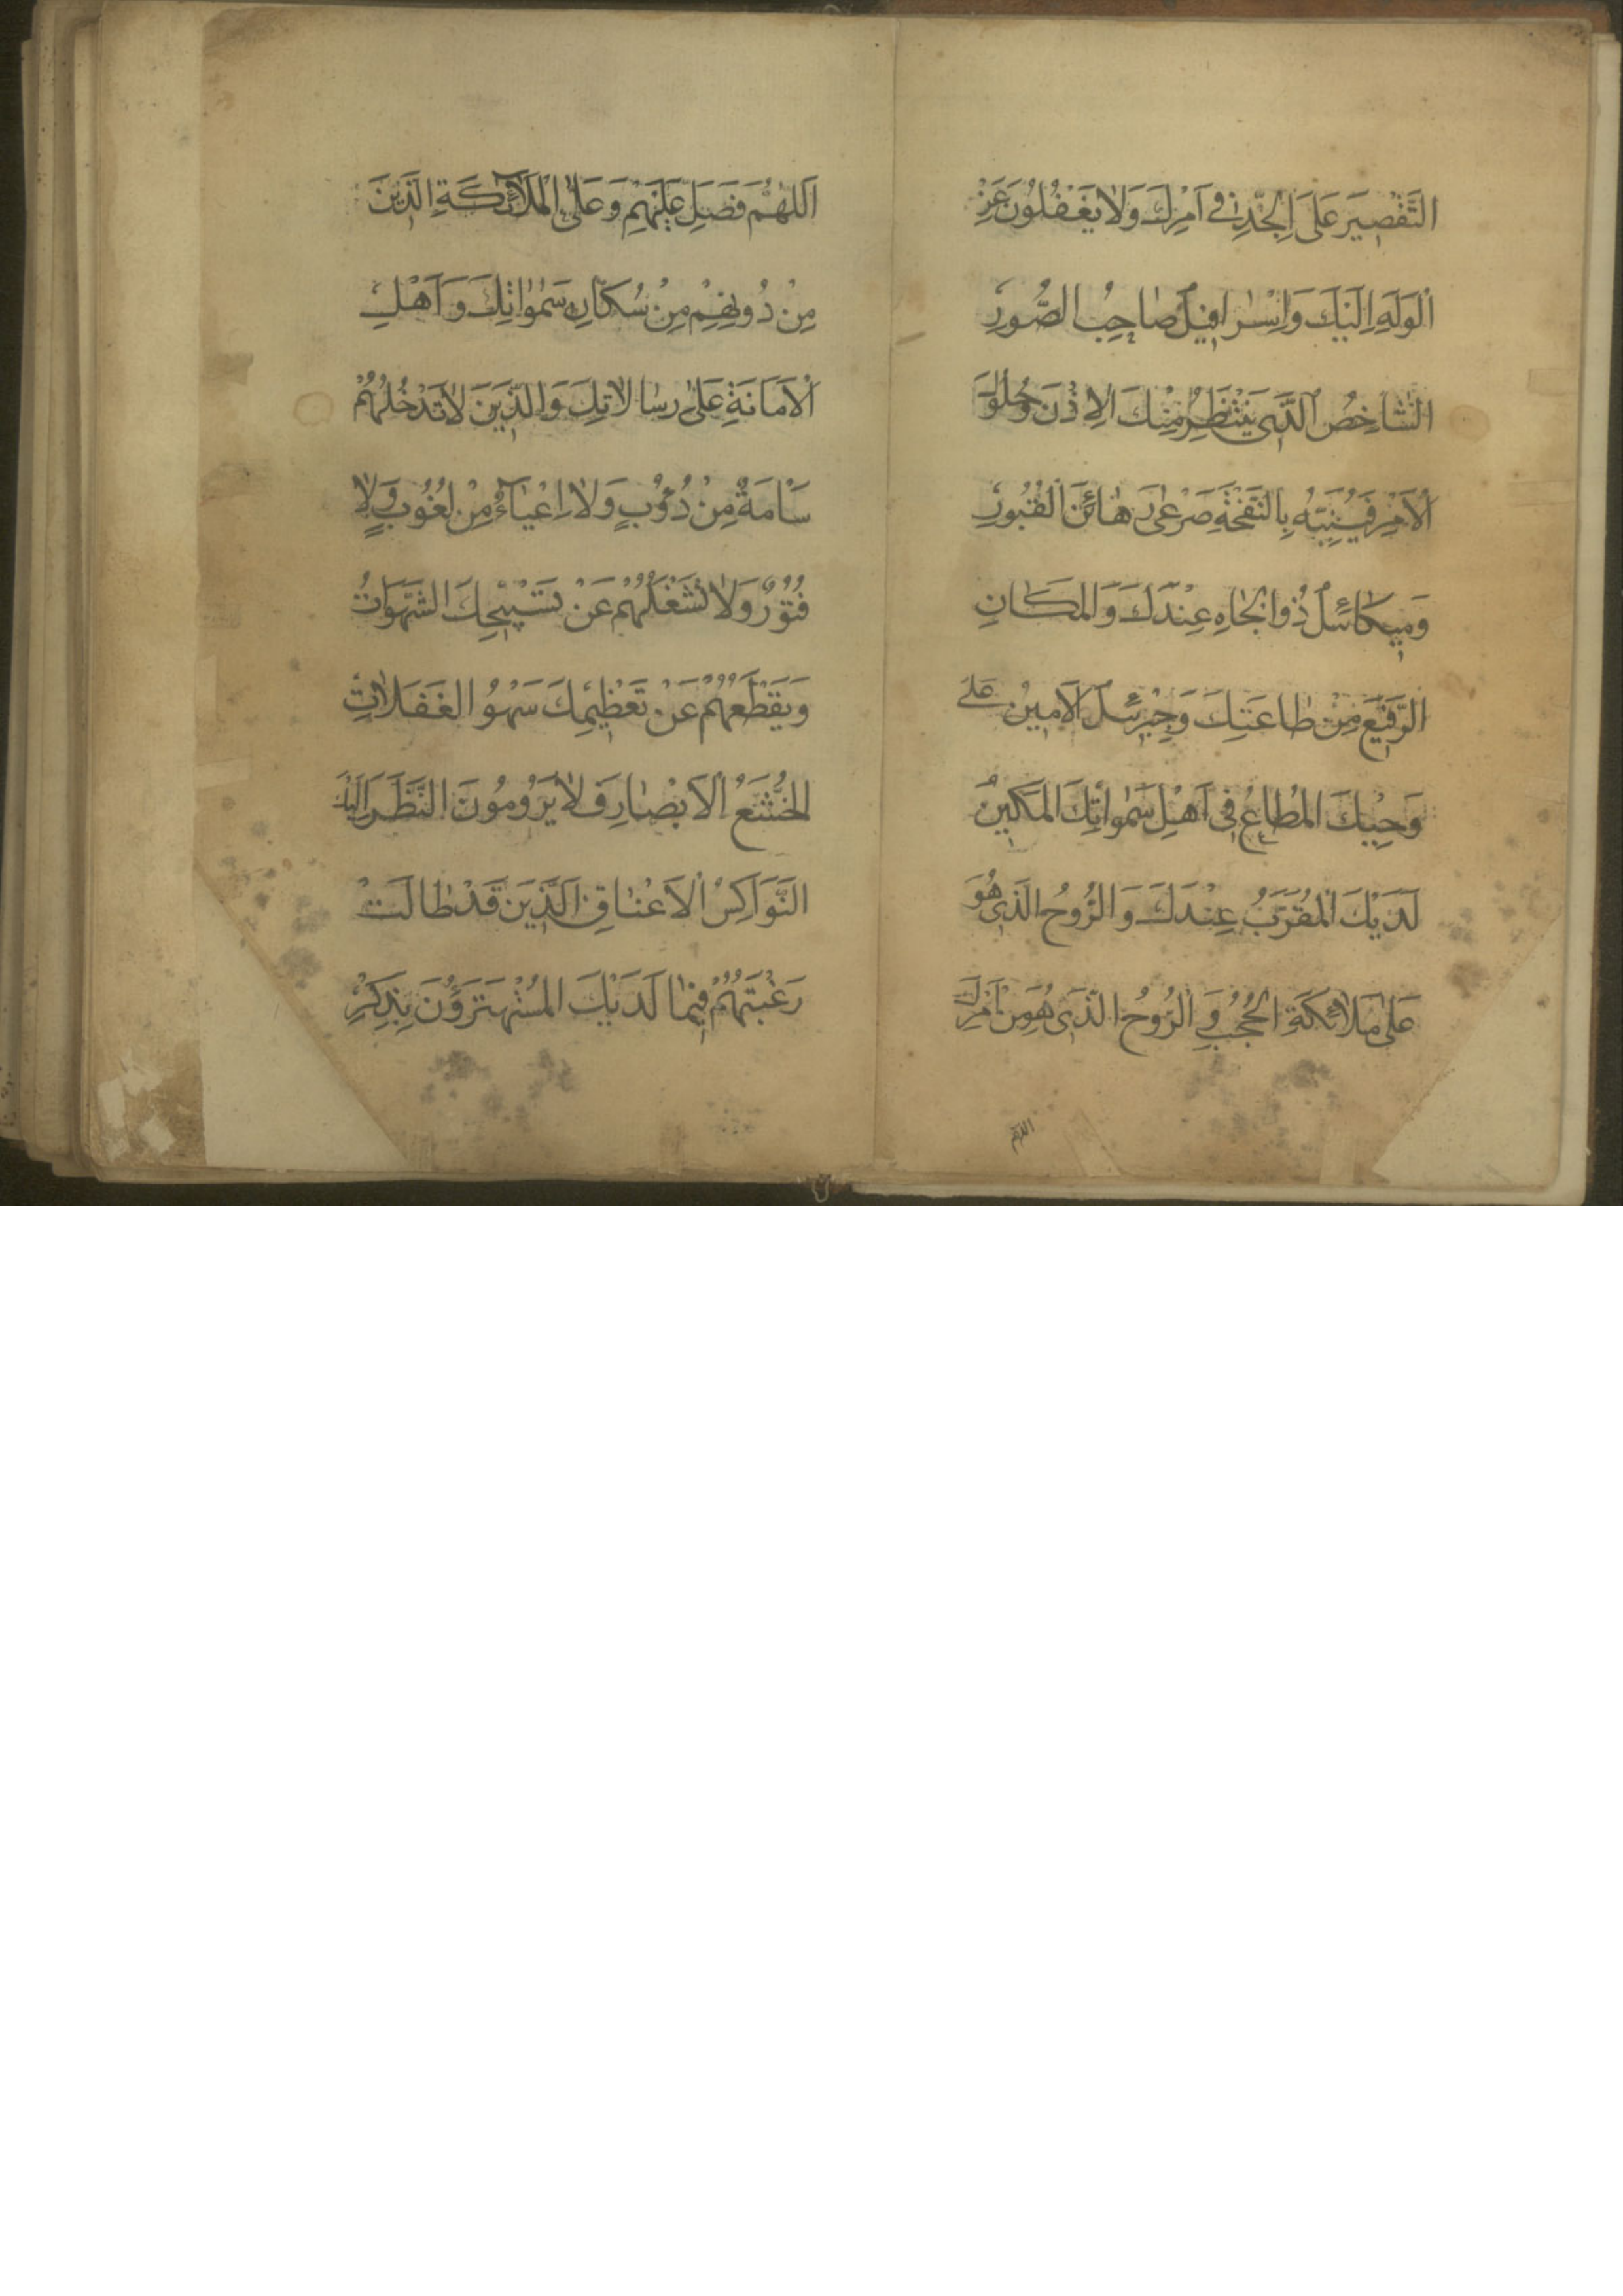 التَّقْصِيرَ عَلَى الْجِدِّ فِي اَمْرِكَ وَلَا يَغْفُلُونَ عَنِ
الْوَلَهِ اِلَيْكَ وَاِسْرَافِيلُ صَاحِبُ الصُّورِ
الشَّاخِصُ الَّذِي يَنْتَظِرُ مِنْكَ الْاِذْنَ وَحُلُولَ
الْاَمْرِ فَيُنَبِّهُ بِالنَّفْخَةِ صَرْعَى رَهَائِنَ الْقُبُورِ
وَمِيكَائِيلُ ذُو الْجَاهِ عِنْدَكَ وَالْمَكَانِ
الرَّفِيعِ مِنْ طَاعَتِكَ وَجِبْرِئِيلُ الْاَمِينُ عَلَى
وَحْيِكَ الْمُطَاعُ فِي اَهْلِ سَمٰوَاتِكَ الْمَكِينُ
لَدَيْكَ الْمُقَرَّبُ عِنْدَكَ وَالرُّوحُ الَّذِي هُوَ
عَلَى مَلَائِكَةِ الْحُجُبِ وَالرُّوحُ الَّذِي هُوَ مِنْ اَمْرِكَ
اللهم
اَللّٰهُمَّ فَصَلِّ عَلَيْهِمْ وَعَلَى الْمَلَائِكَةِ الَّذِينَ
مِنْ دُونِهِمْ مِنْ سُكَّانِ سَمٰوَاتِكَ وَاَهْلِ
الْاَمَانَةِ عَلَى رِسَالَاتِكَ وَالَّذِينَ لَا تَدْخُلُهُمْ
سَأْمَةٌ مِنْ دُؤُبٍ وَلَا اِعْيَاءٌ مِنْ لُغُوبٍ وَلَا
فُتُورٌ وَلَا تَشْغَلُهُمْ عَنْ تَسْبِيحِكَ الشَّهَوَاتُ
وَيَقْطَعُهُمْ عَنْ تَعْظِيمِكَ سَهْوُ الْغَفَلَاتِ
الْخُشَّعُ الْاَبْصَارِ فَلَا يَرُومُونَ النَّظَرَ اِلَيْكَ
النَّوَاكِسُ الْاَعْنَاقِ الَّذِينَ قَدْ طَالَتْ
رَغْبَتُهُمْ فِيمَا لَدَيْكَ الْمُسْتَهْتَرُونَ بِذِكْرِ